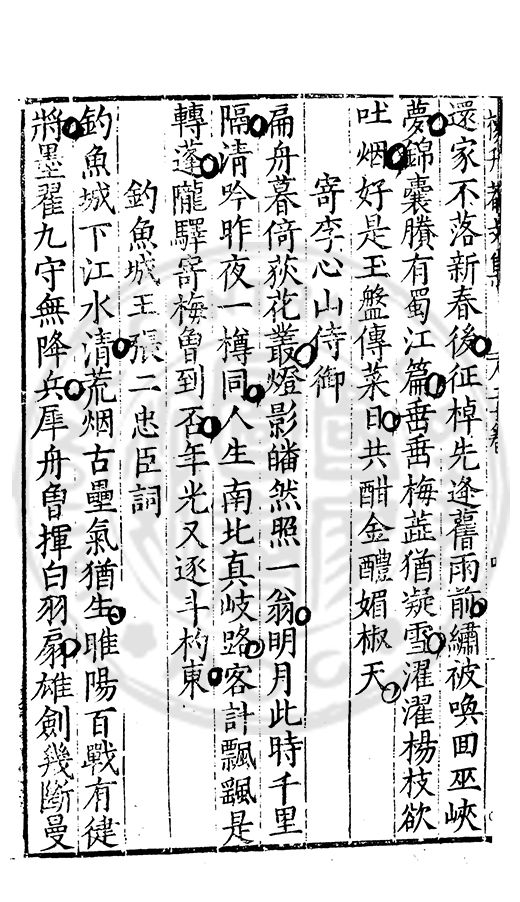 還家不落新春後征棹先逢舊雨前繡被喚回巫峽
夢錦囊賸有蜀江篇垂垂梅蕋猶凝雪濯濯楊枝欲
吐烟好是玉盤傳菜日共酣金醴媚椒天
寄李心山侍御
扁舟暮倚荻花叢燈影皤然照一翁明月此時千里
隔清吟昨夜一樽同人生南北真岐路客計飄飄是
轉蓬隴驛寄梅魯到否年光又逐斗杓東
釣魚城王張二忠臣詞
釣魚城下江水清荒烟古壘氣猶生睢陽百戰有健
將墨翟九守無降兵犀舟魯揮白羽扇雄劍幾斷曼